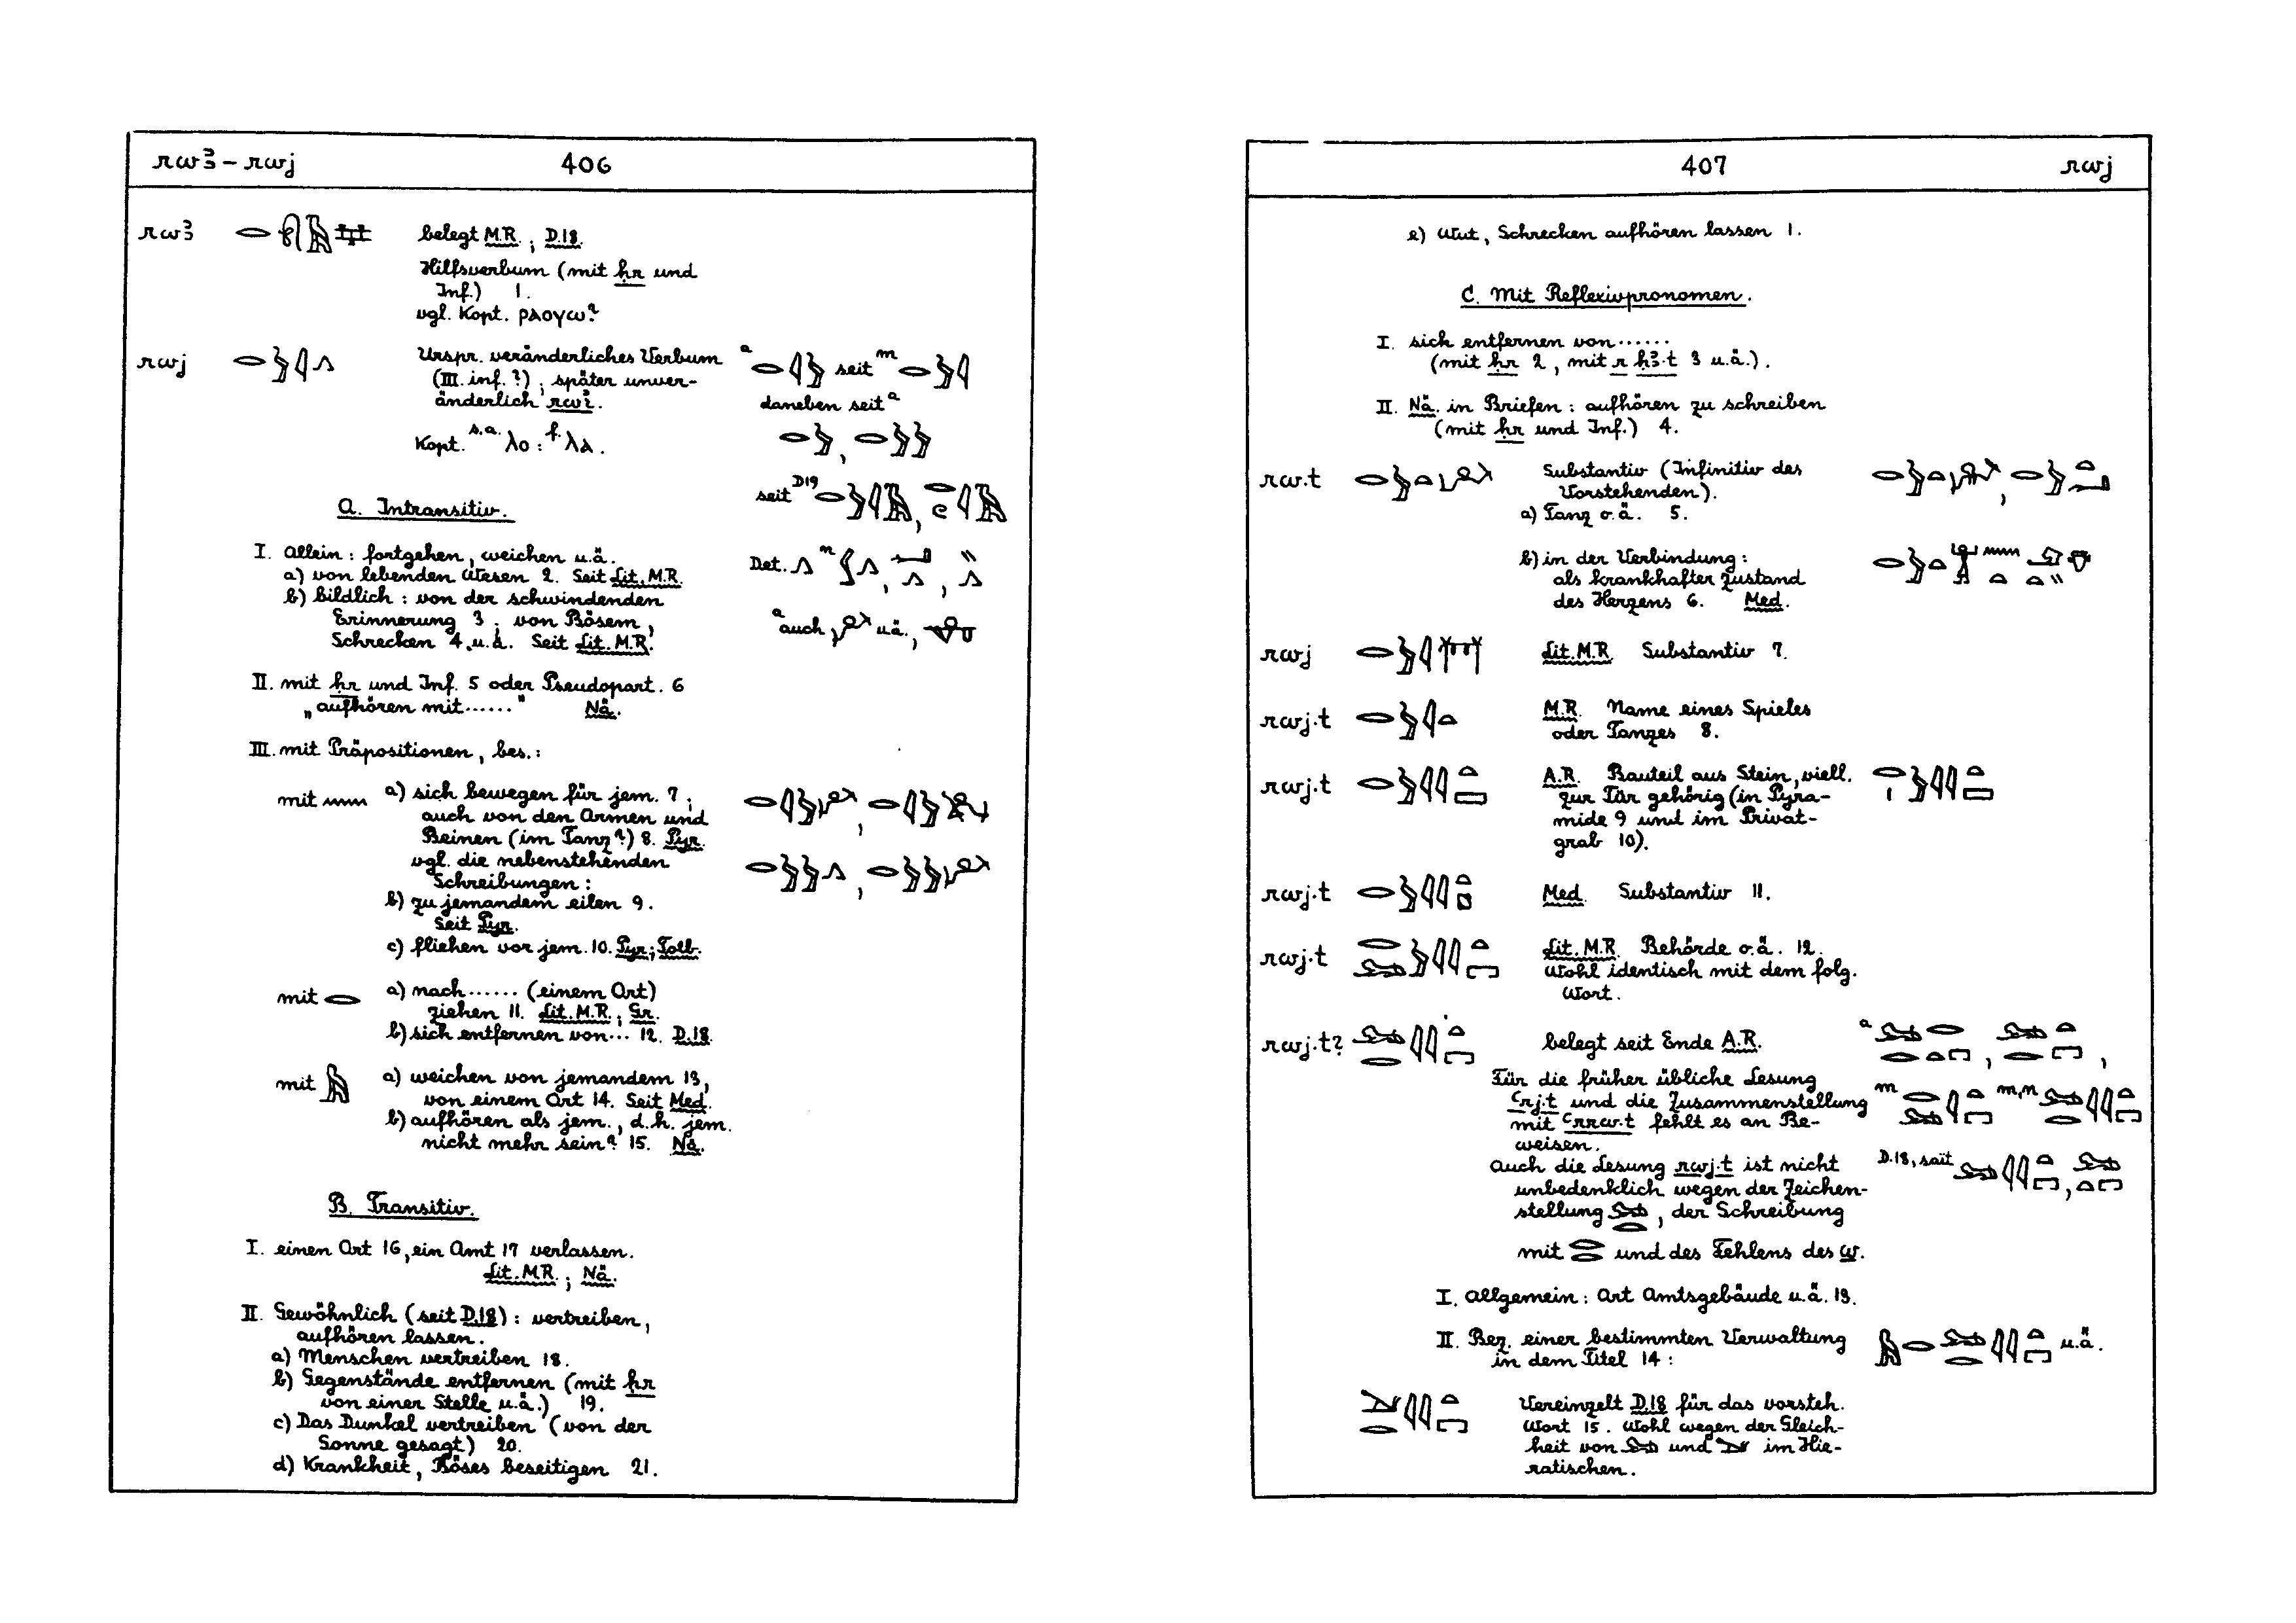 rwꜣ – rwj 406
rwꜣ belegt M.R.; D.18.
Hilfsverbum (mit ḥr und
Inf.) 1.
vgl. Kopt. ⲣⲁⲟⲩⲱ?
rwj Urspr. veränderliches Verbum
(III. inf.?); später unver-
änderlich rwỉ.
Kopt. s.a. ⲗⲟ : f. ⲗⲁ.
a seit m
daneben seit a
seit D19
A. Intransitiv.
I. Allein: fortgehen, weichen u.ä.
a) von lebenden Wesen 2. Seit Lit. M.R.
b) bildlich: von der schwindenden
Erinnerung 3; von Bösem,
Schrecken 4 u.ä. Seit Lit. M.R.
Det. m
a auch u.ä.,
II. mit ḥr und Inf. 5 oder Pseudopart. 6
„aufhören mit......" Nä.
III. mit Präpositionen, bes.:
mit a) sich bewegen für jem. 7;
auch von den Armen und
Beinen (im Tanz?) 8. Pyr.
vgl. die nebenstehenden
Schreibungen:
b) zu jemandem eilen 9.
Seit Pyr.
c) fliehen vor jem. 10. Pyr; Totb.
mit a) nach...... (einem Ort)
ziehen 11. Lit. M.R.; Gr.
b) sich entfernen von... 12. D.18.
mit a) weichen von jemandem 13,
von einem Ort 14. Seit Med.
b) aufhören als jem., d.h. jem.
nicht mehr sein? 15. Nä.
B. Transitiv.
I. einen Ort 16, ein Amt 17 verlassen.
Lit. M.R.; Nä.
II. Gewöhnlich (seit D.18): vertreiben,
aufhören lassen.
a) Menschen vertreiben 18.
b) Gegenstände entfernen (mit ḥr
von einer Stelle u.ä.) 19.
c) Das Dunkel vertreiben (von der
Sonne gesagt) 20.
d) Krankheit, Böses beseitigen 21.
407 rwj
e) Wut, Schrecken aufhören lassen 1.
C. Mit Reflexivpronomen.
I. sich entfernen von......
(mit ḥr 2, mit r ḥꜣ.t 3 u.ä.).
II. Nä. in Briefen: aufhören zu schreiben
(mit ḥr und Inf.) 4.
rw.t Substantiv (Infinitiv des
Vorstehenden).
a) Tanz o.ä. 5.
b) in der Verbindung:
als krankhafter Zustand
des Herzens 6. Med.
rwj Lit. M.R. Substantiv 7.
rwj.t M.R. Name eines Spieles
oder Tanzes 8.
rwj.t A.R. Bauteil aus Stein, viell.
zur Tür gehörig (in Pyra-
mide 9 und im Privat-
grab 10).
rwj.t Med. Substantiv 11.
rwj.t Lit. M.R. Behörde o.ä. 12.
Wohl identisch mit dem folg.
Wort.
rwj.t? belegt seit Ende A.R. a
Für die früher übliche Lesung
ꜥrj.t und die Zusammenstellung m m,n
mit ꜥrrw.t fehlt es an Be-
weisen.
Auch die Lesung rwj.t ist nicht D.18, seit
unbedenklich wegen der Zeichen-
stellung , der Schreibung
mit und des Fehlens des w.
I. Allgemein: Art Amtsgebäude u.ä. 13.
II. Bez. einer bestimmten Verwaltung u.ä.
in dem Titel 14:
Vereinzelt D.18 für das vorsteh.
Wort 15. Wohl wegen der Gleich-
heit von und im Hie-
ratischen.